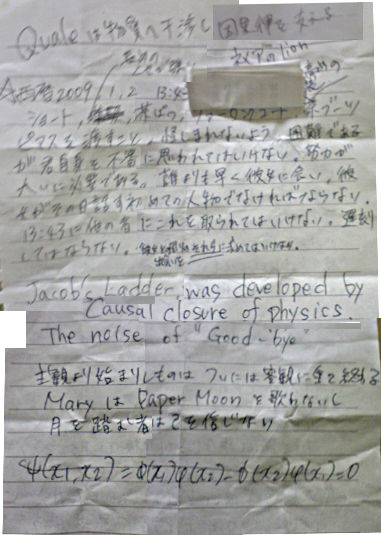 Quale は物質へ干渉し 因果律を支える
救アのlion
西暦2009 1, 2 13:43
ショート, 茶ぱつ, 茶ブーツ
ピアスを渡すこと, 怪しまれないよう. 困難である
が君自身を不審に思われてはいけない. 努力が
大いに必要である. 誰よりも早く彼女に会い, 彼
女がその日話す初めての人物でなければならない.
13:43に他の者にこれを取られてはいけない. 遅刻
してはならない.
Jacob's Ladder, was developed by
Causal closure of physics.
The noise of "Good-bye"
主観より始まりしものは ついには客観に至て終る
Mary は Paper Moon を歌わないし
月を踏む者は を信じない
ψ(x1, x2) = φ(x1)φ(x2) - φ(x2)φ(x1) = 0